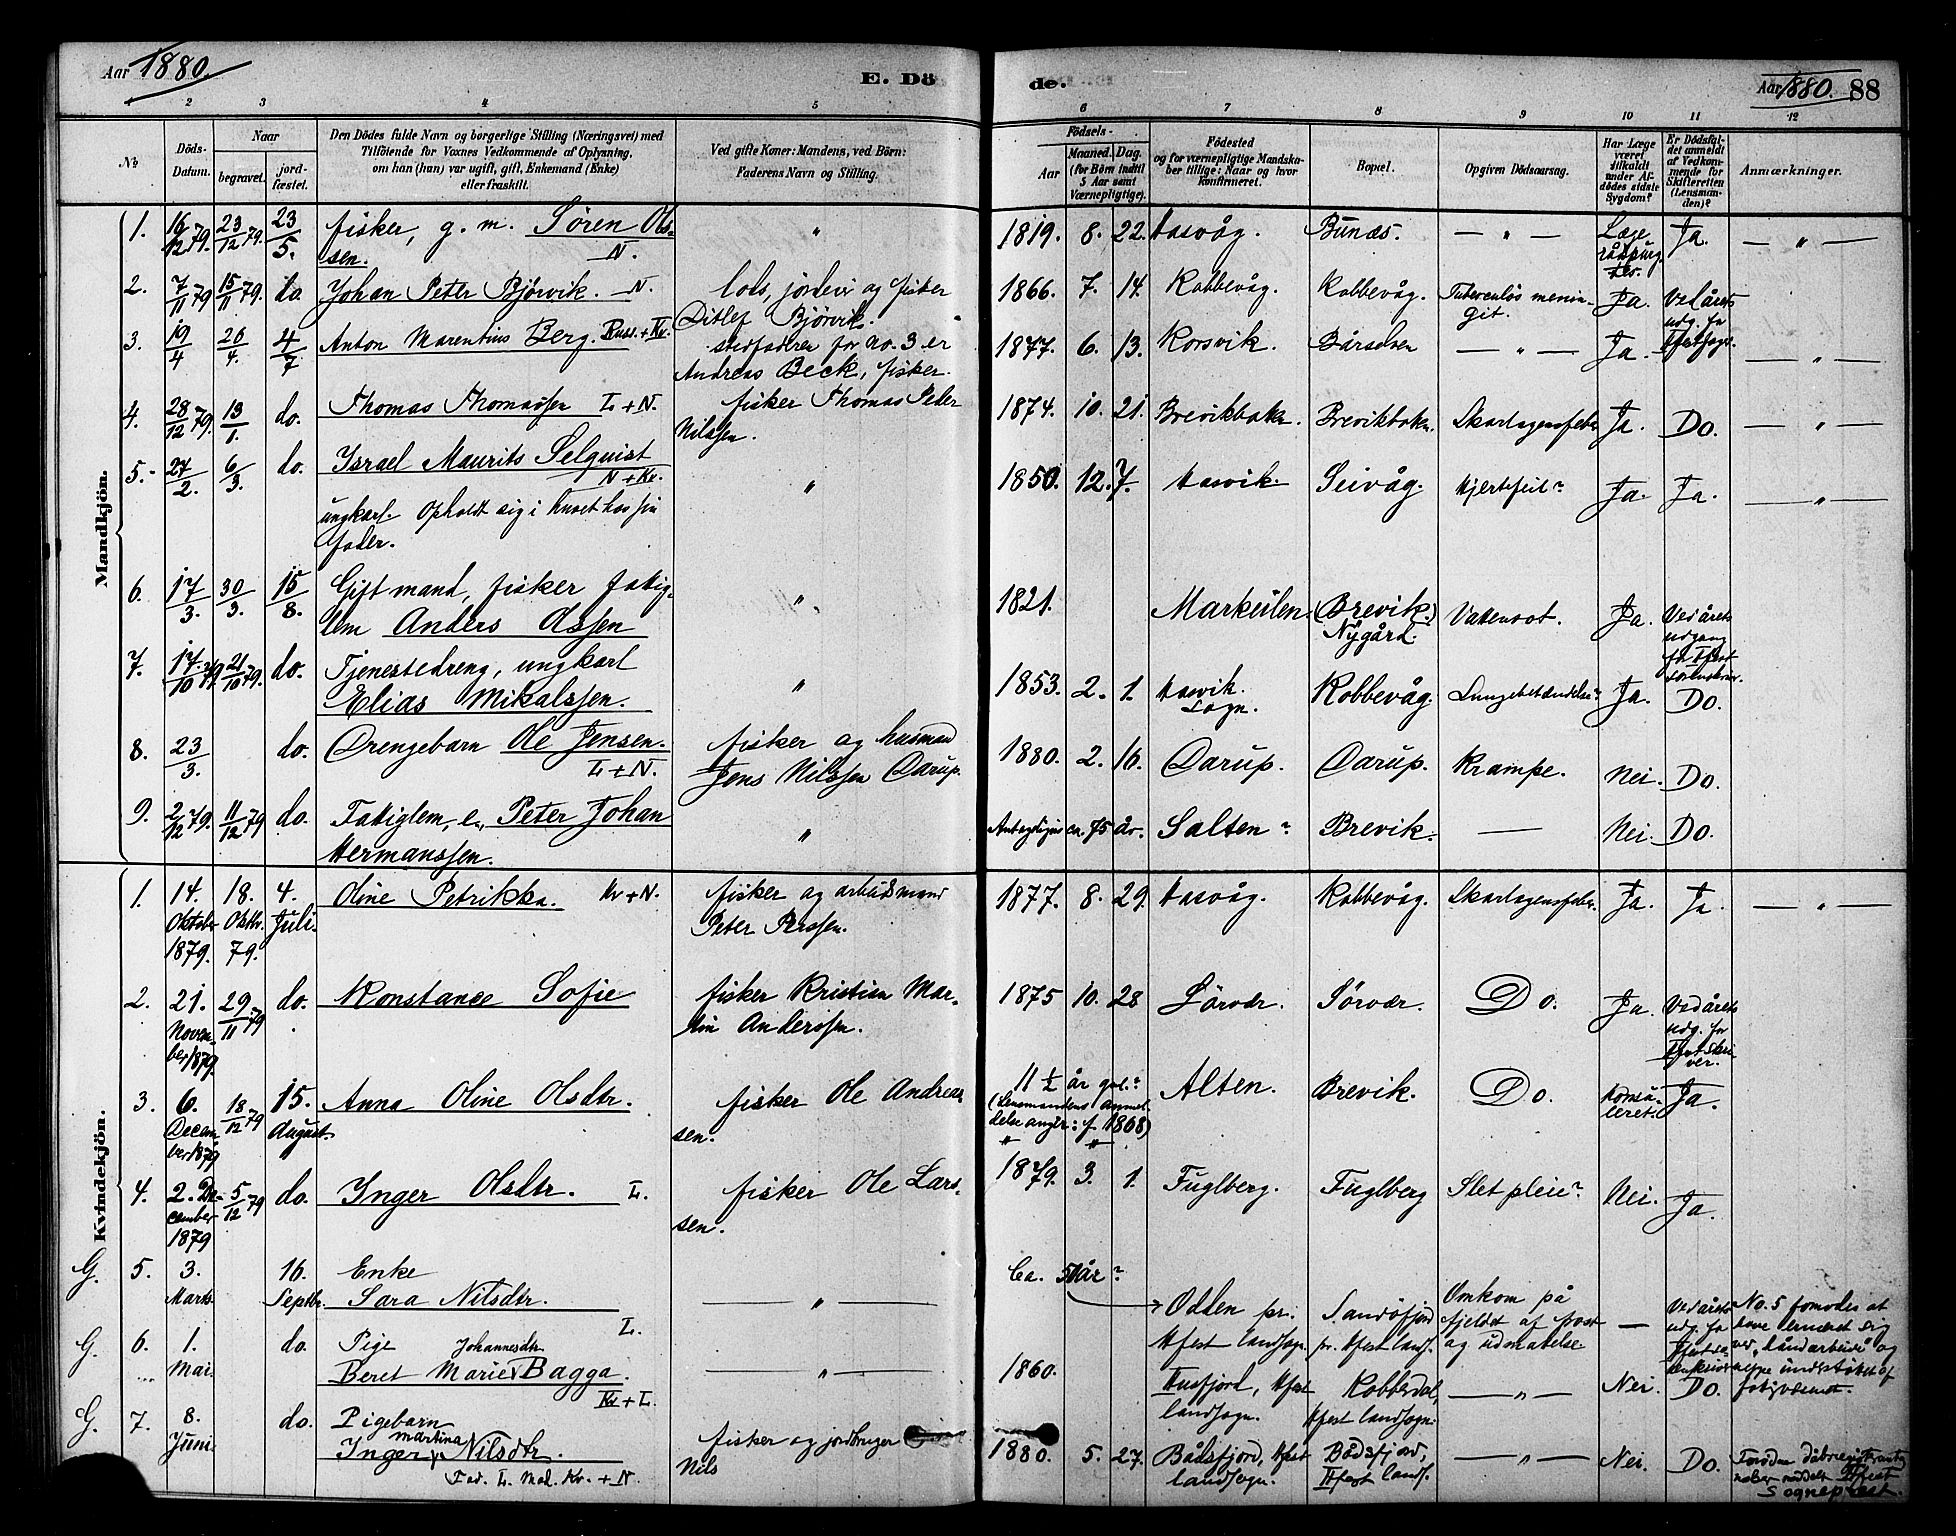 Aar 1880.
E. Döde.
Aar 1880. 88
1 2 3 4 5 6 7 8 9 10 11 12
No
Döds-Datum.
Naar
begravet.
jord-fæstet.
Den Dödes fulde Navn og borgerlige Stilling (Næringsvei) med
Tilföiende for Voxnes Vedkommende af Oplysning,
om han (hun) var ugift, gift, Enkemand (Enke)
eller fraskilt.
Ved gifte Koner: Mandens, ved Börn:
Faderens Navn og Stilling.
Födsels-
Aar
Maaned. Dag.
(for Börn indtil
5 Aar samt
Værnepligtige).
Födested
og for værnepligtige Mandska-
ber tillige: Naar og hvor
konfirmeret.
Bopæl.
Opgiven Dödsaarsag.
Har Læge
været
tilkaldt
under Af-
dödes sidste
Sygdom?
Er Dödsfal-
det anmeldt
af Vedkom-
mende for
Skifteretten
(Lensman-
den)?
Anmærkninger.
Mandkjön.
1. 16/12 79. 23/12 79. 23/5. fisker, g. m. Sören Ols-
sen. N. " 1819. 8. 22. Hasvåg. Bunæs. — " — Læge Ja. — " —
2. 7/11 79 15/11 79. do. Johan Peter Björvik. N. lods, jordeir og fisker
Ditlef Björvik. 1866. 7. 14. Kobbevåg. Kobbevåg. Tuberculös menin-
git. Ja. Ved årets
udg. fr
3. 19/4 26/4. 4/7 Anton Marentius Berg. Russ. + Kv. stedfaderen for no. 3 er
Andreas Beck, fisker. 1877. 6. 13. Korsvik. Bårselven — " — Ja. — " —
4. 28/12 79. 13/1. do. Thomas Thomassen L + N. fisker Thomas Peder
Nilssen. 1874. 10. 21. Brevikbakn. Brevikbakn. Skarlagensfeber Ja. Do. — " —
5. 27/2. 6/3. do. Israel Maurits Selquist
N + Kv.
ungkarl. Opholdt sig i huset hos sin
fader. " 1850. 12. 7. Hasvik. Seivåg. Hjertefeil? Ja. Ja. — " —
6. 17/3. 30/3. 15/8. Gift mand, fisker fatig-
lem Anders Olssen " 1821. Markeilen. (Brevik.)
Nygård. Vattersot. Ja. Ved årets
udgang
7. 17/10 79. 21/10 79. do. Tjenestedreng, ungkarl
Elias Mikalssen. " 1853. 2. 1. Hasvik.
sogn. Kobbevåg. Lungebetændelse? Ja. Do.
8. 23/3. do. Drengebarn Ole Jensen.
L + N. fisker og husmand
Jens Nilssen Darup. 1880. 2. 16. Darup. Darup. Krampe. Nei. Do.
9. 2/12 79. 11/12 79 do. Fatiglem, e., Peter Johan
Hermanssen. " ca. 75 år. Salten? Brevik. — Nei. Do.
Kvindekjön.
1. 14.
Oktober
1879. 18.
Oktbr.
79. 4.
Juli. Oline Petrikka. Kv + N. fisker og arbeidsmand
Peter Perssen. 1877. 8. 29. Hasvåg. Kobbevåg. Skarlagensfeber. Ja. Ja. — " —
2. 21.
Novem-
ber 1879. 29/11 79 do. Konstance Sofie fisker Kristian Mar-
tin Anderssen. 1875 10. 28 Sörvær. Sörvær. Do. Ja. Ved årets
udg. fr
Hfest skri-
ver.
3. 6.
Decem-
ber 1879 18/12 79 15.
August. Anna Oline Olsdtr. fisker Ole Andreas-
sen. 11 1/2 år gml.?
(Lensmandens anmel-
delse angir: f. 1868) Alten. Brevik. Do. Konsu-
leret. Ja.
4. 2. De-
cember
1879 5/12 79 do. Inger Olsdtr. L. fisker Ole Lars-
sen. 1879. 3. 1. Fuglberg. Fuglberg Slet pleie? Nei. Ja.
G. 5. 3.
Marts. 16.
Septbr. Enke
Sara Nilsdtr.
L. — " — Ca. 50 år? Odden pr.
Hfest landsogn. Sandöfjord
pr. Hfest lands. Omkom på
fjeldet af frost
og udmattelse — Ved årets
udg. fr No. 5 formodes at
have ernæret sig
ved „håndarbeide" og
neppe understöttet af
fatigvæsenet.
G. 6. 1.
Mai. do. Pige Johannesdtr
Beret Marie Bagga.
Kv + L. — " — 1860. Husfjord, Hfest
landsogn. Kobberdal,
Hfest landsogn. — " — Nei. Do.
G. 7. 8.
Juni. do. Pigebarn
martina
Inger Nilsdtr.
Fad. L. Mod. Kv. + N. fisker og jordbruger
Nils 1880. 5. 27. Bådsfjord, Hfest
landsogn. Bådsfjord,
Hfest lands. — " — Nei. Do. Hfest
Sogneprest.